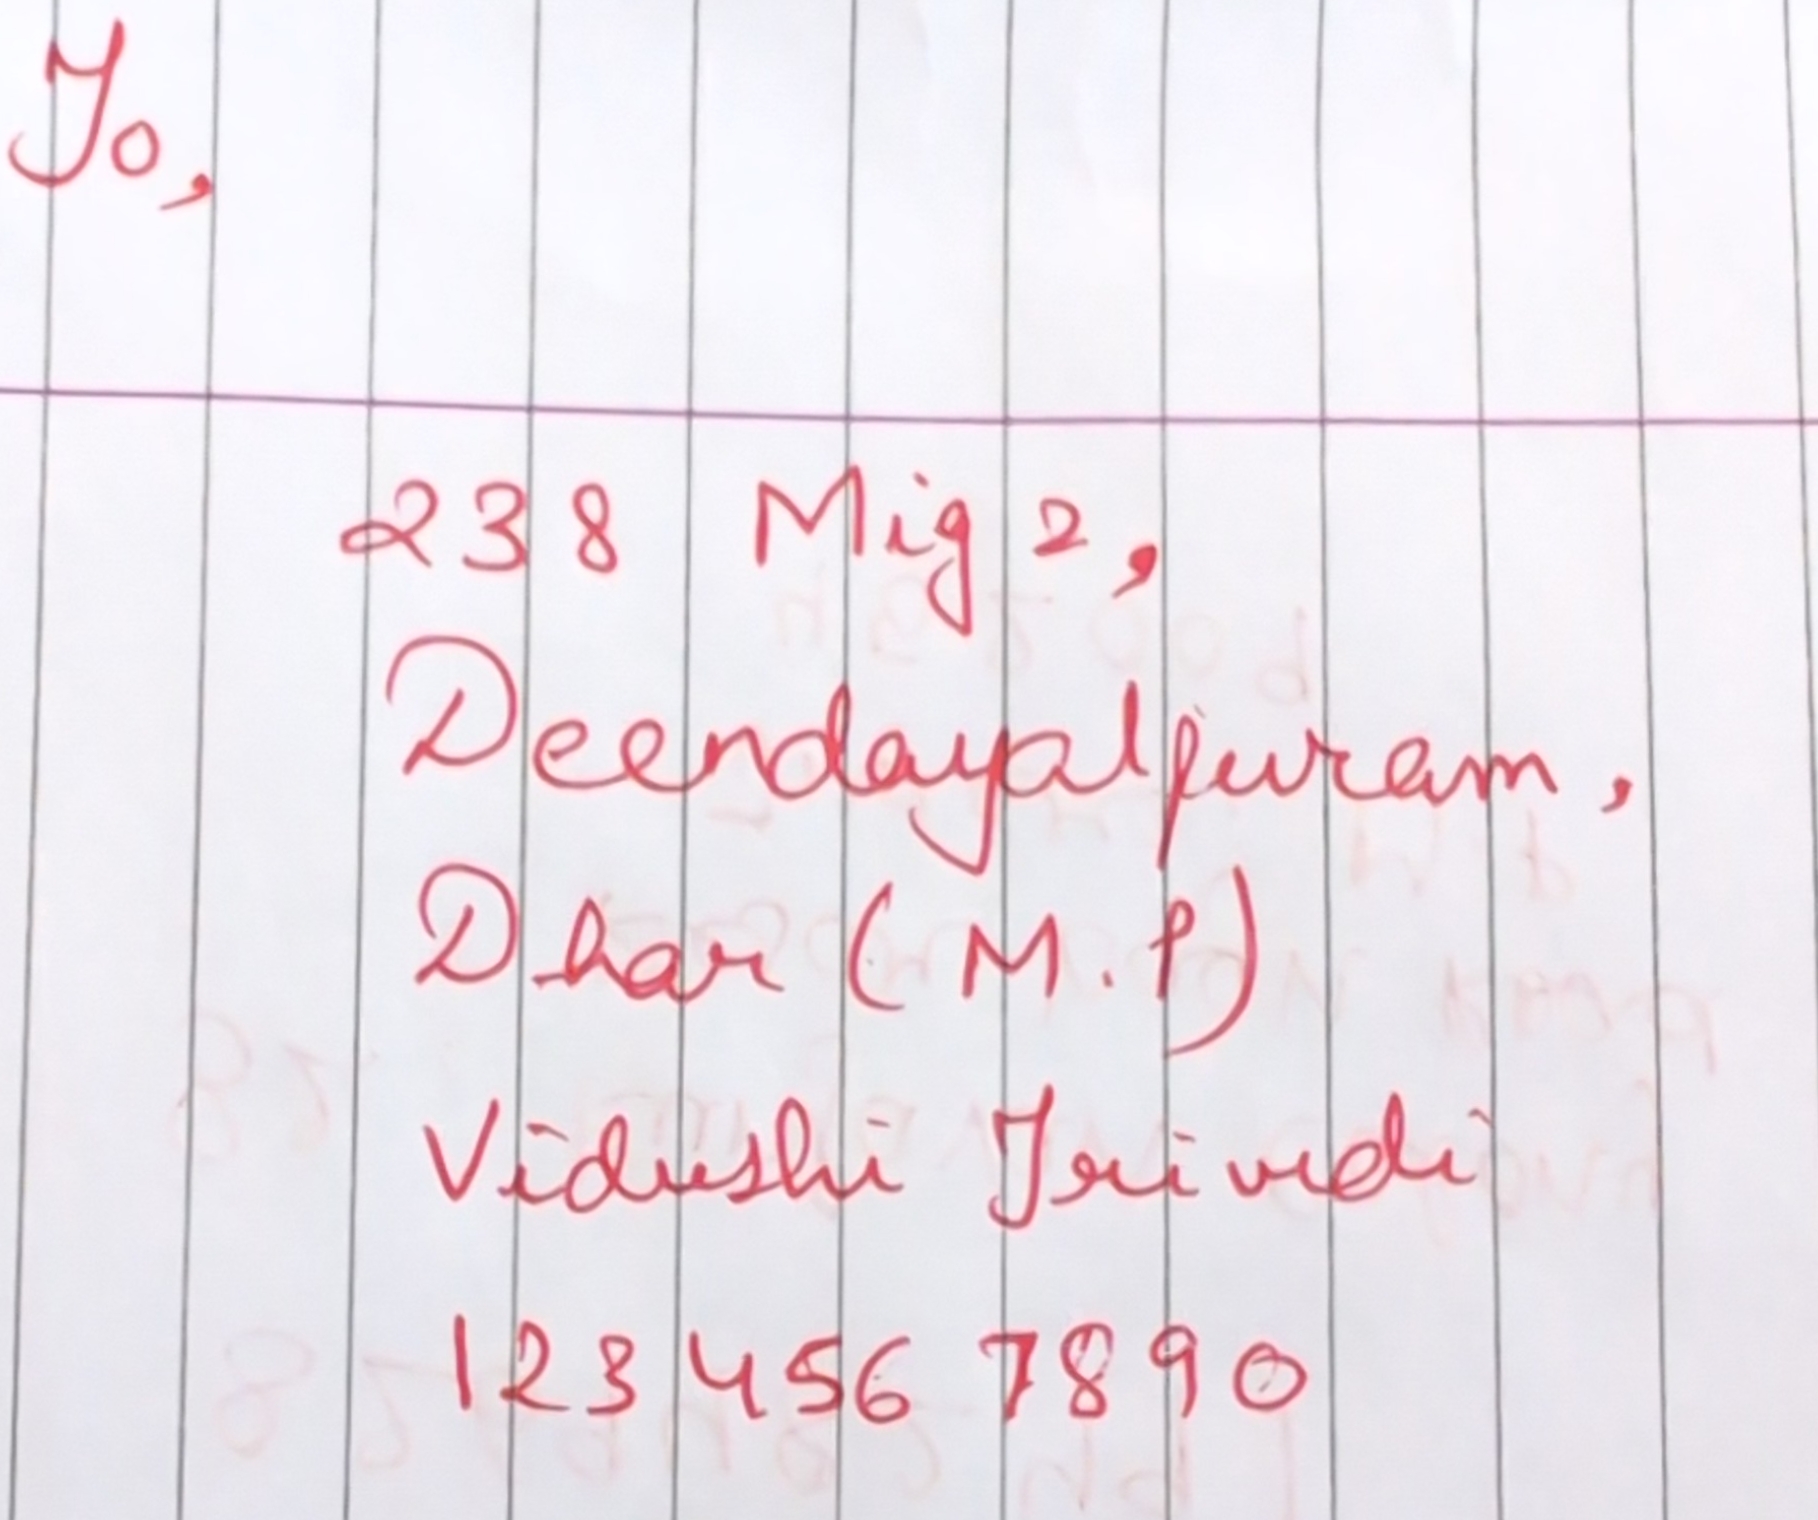 To,
238 Mig 2,
Deendayalpuram,
Dhar (M.P)
Vidushi Trivedi
1234567890